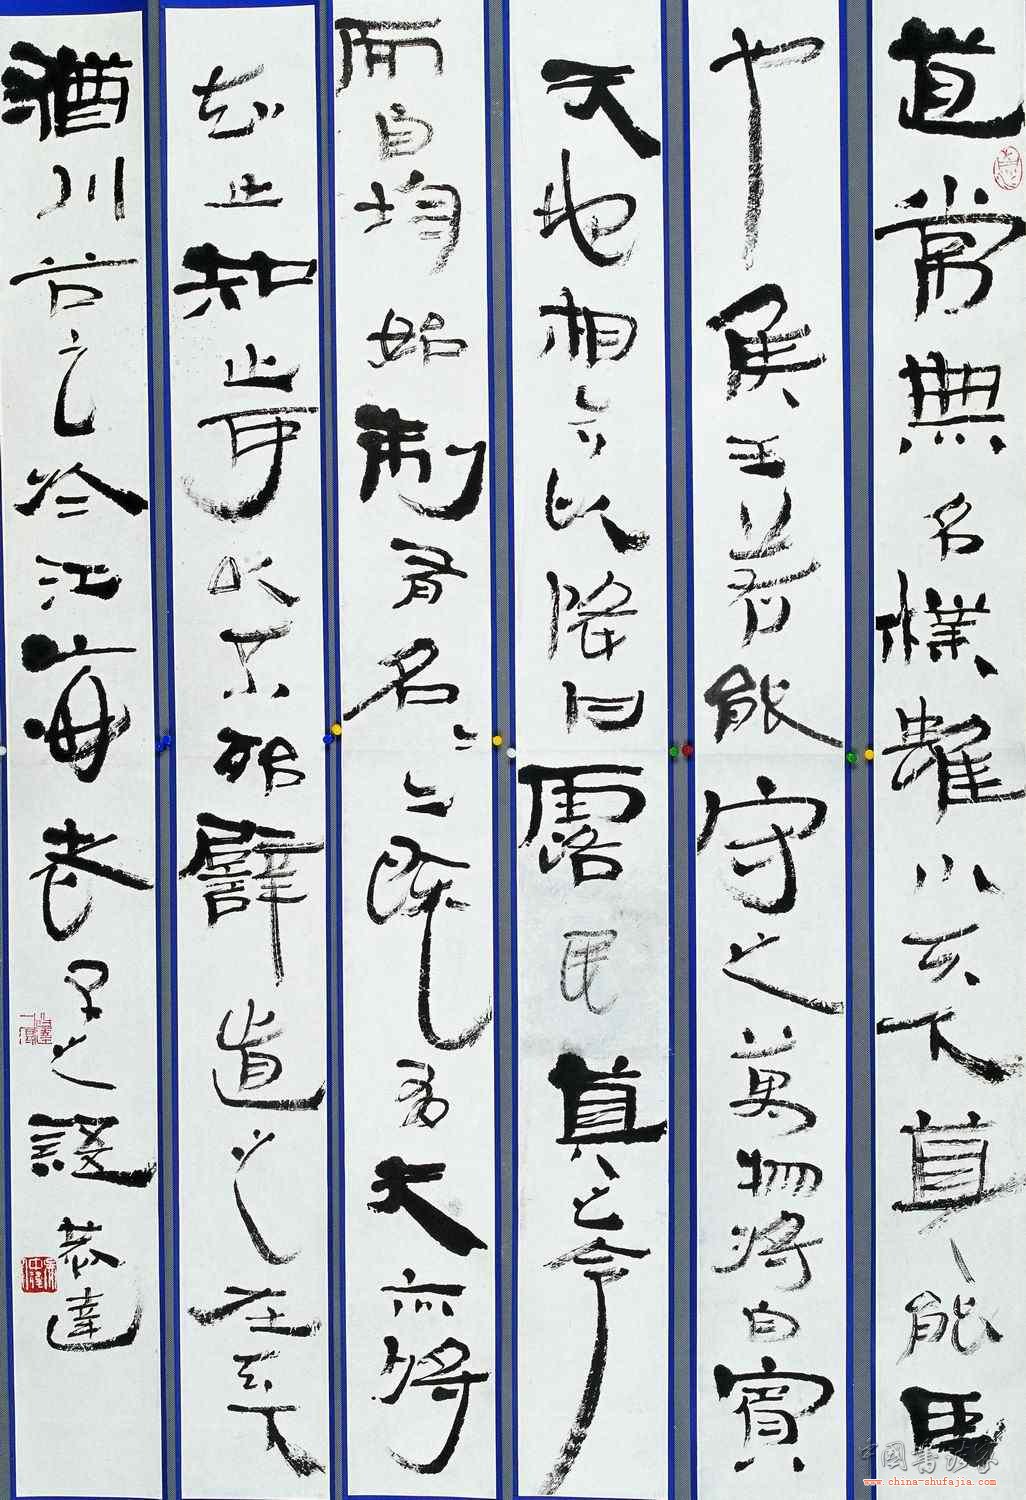 道常無名樸雖小天下莫能臣
也侯王若能守之萬物將自賓
天地相合以降甘露民莫之令
而自均始制有名〻亦既有夫亦將
知止知止可以不殆譬道之在天下
猶川谷之於江海老子之語 恭達
中國書法家
www.china-shufajia.com